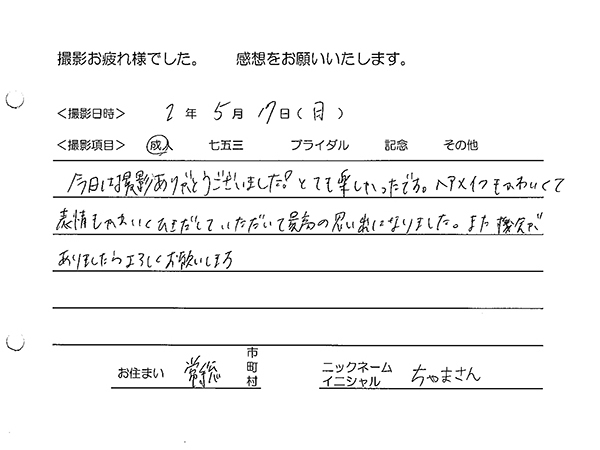 撮影お疲れ様でした。 感想をお願いいたします。
<撮影日時> 2 年 5 月 17 日 ( 日 )
<撮影項目> 成人 七五三 ブライダル 記念 その他
今日は撮影ありがとうございました! とても楽しかったです。ヘアメイクもかわいくて
表情もかわいくひきだしていただいて最高の思い出になりました。また機会が
ありましたらよろしくお願いします
お住まい 常総 市町村 ニックネーム イニシャル ちゃまさん